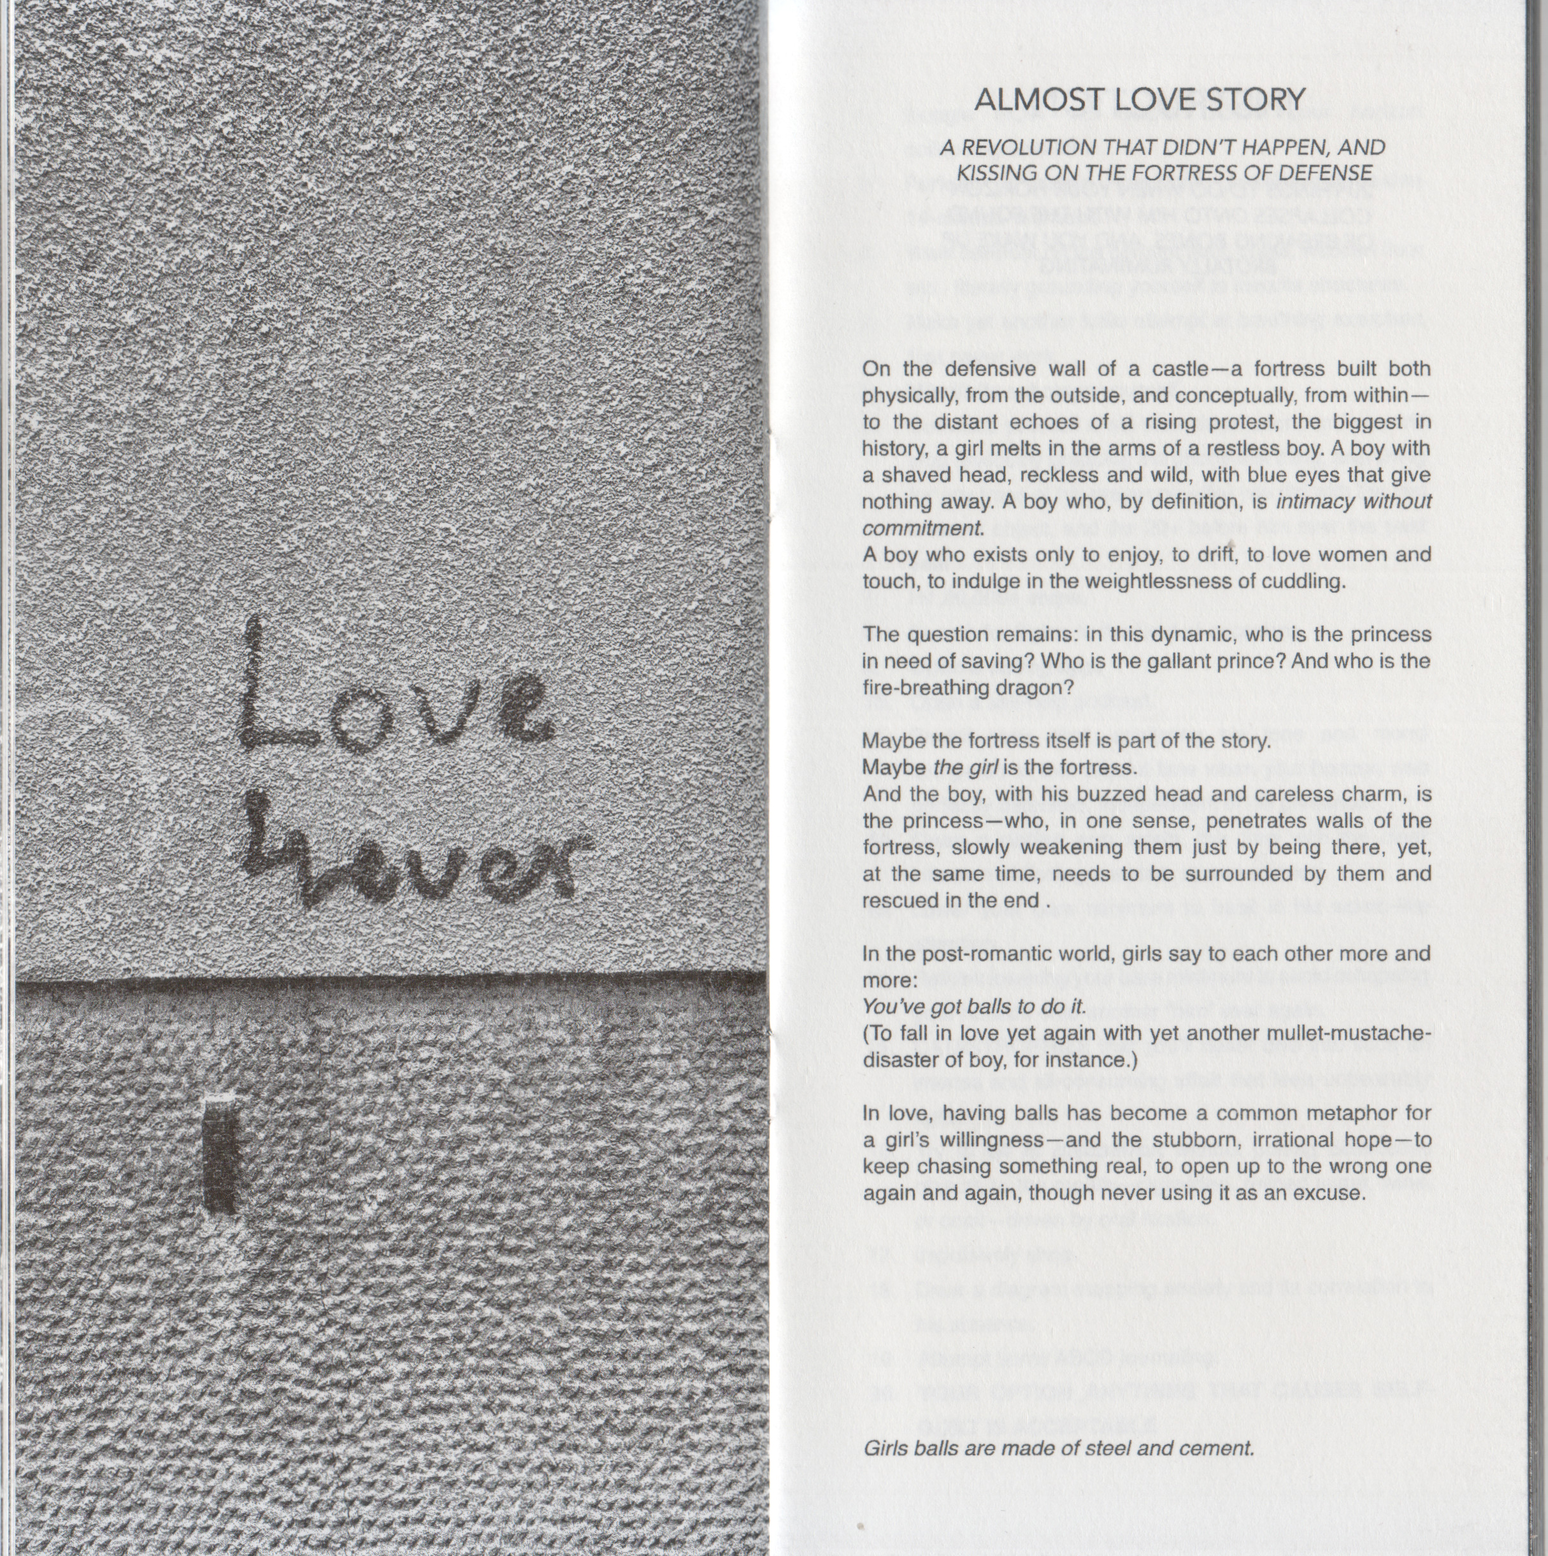 Love
Lover
ALMOST LOVE STORY
A REVOLUTION THAT DIDN'T HAPPEN, AND
KISSING ON THE FORTRESS OF DEFENSE
On the defensive wall of a castle—a fortress built both
physically, from the outside, and conceptually, from within—
to the distant echoes of a rising protest, the biggest in
history, a girl melts in the arms of a restless boy. A boy with
a shaved head, reckless and wild, with blue eyes that give
nothing away. A boy who, by definition, is intimacy without
commitment.
A boy who exists only to enjoy, to drift, to love women and
touch, to indulge in the weightlessness of cuddling.
The question remains: in this dynamic, who is the princess
in need of saving? Who is the gallant prince? And who is the
fire-breathing dragon?
Maybe the fortress itself is part of the story.
Maybe the girl is the fortress.
And the boy, with his buzzed head and careless charm, is
the princess—who, in one sense, penetrates walls of the
fortress, slowly weakening them just by being there, yet,
at the same time, needs to be surrounded by them and
rescued in the end .
In the post-romantic world, girls say to each other more and
more:
You've got balls to do it.
(To fall in love yet again with yet another mullet-mustache-
disaster of boy, for instance.)
In love, having balls has become a common metaphor for
a girl's willingness—and the stubborn, irrational hope—to
keep chasing something real, to open up to the wrong one
again and again, though never using it as an excuse.
Girls balls are made of steel and cement.